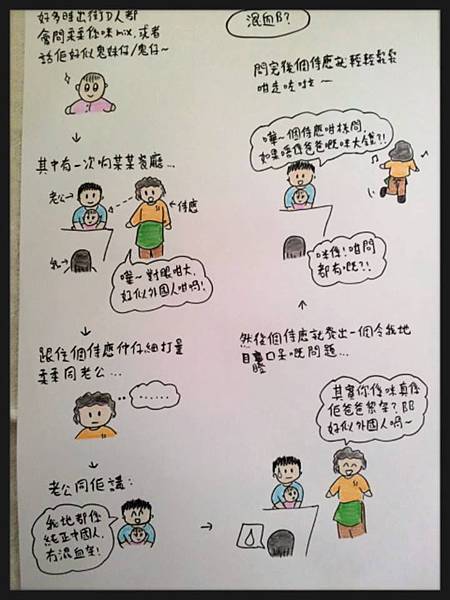 混血B?
好多時出街D人都
會問柔柔係咪mix,或者
話佢好似鬼妹仔/鬼仔~
其中有一次响某某餐廳...
老公→
←侍應
我→
嘩~對眼咁大,
好似外國人咁喎!
跟住個侍應仲仔細打量
柔柔同老公...
......
老公同佢講:
我地都係
純正中國人,
冇混血架!
然後個侍應就發出一個令我地
目瞪口呆嘅問題...
其實你係咪真係
佢爸爸黎架?BB
好似外國人喎~
問完後個侍應就輕輕鬆鬆
咁走咗啦~
嘩~個侍應咁樣問
如果唔係爸爸嘅咪大鑊?!
咪係!咁問
都有嘅?!